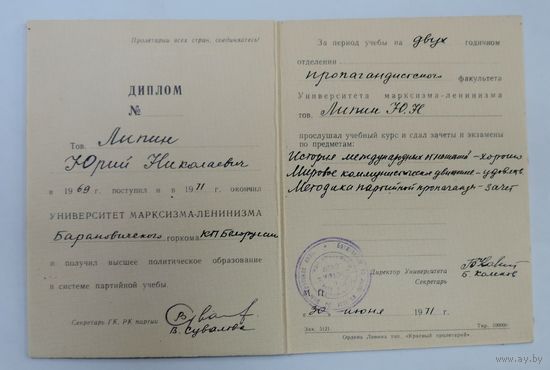 Пролетарии всех стран, соединяйтесь!
ДИПЛОМ
№
Тов. Липин
Юрий Николаевич
в 1969 г. поступил и в 1971 г. окончил
УНИВЕРСИТЕТ МАРКСИЗМА-ЛЕНИНИЗМА
Барановичского горкома КП Белоруссии
и получил высшее политическое образование
в системе партийной учебы.
Секретарь ГК, РК партии
В. Сувалова
За период учебы на двух годичном
отделении
пропагандистского факультета
Университета марксизма-ленинизма
тов. Липин Ю.Н
прослушал учебный курс и сдал зачеты и экзамены
по предметам:
История международных отношений - хорошо
Мировое коммунистическое движение - удовлетв
Методика партийной пропаганды - зачет
Директор Университета
Секретарь
Б.
М. П.
« 30 » июня 1971 г.
Зак. 5121. Тир. 100000
Ордена Ленина тип. «Красный пролетарий».
www.ay.by